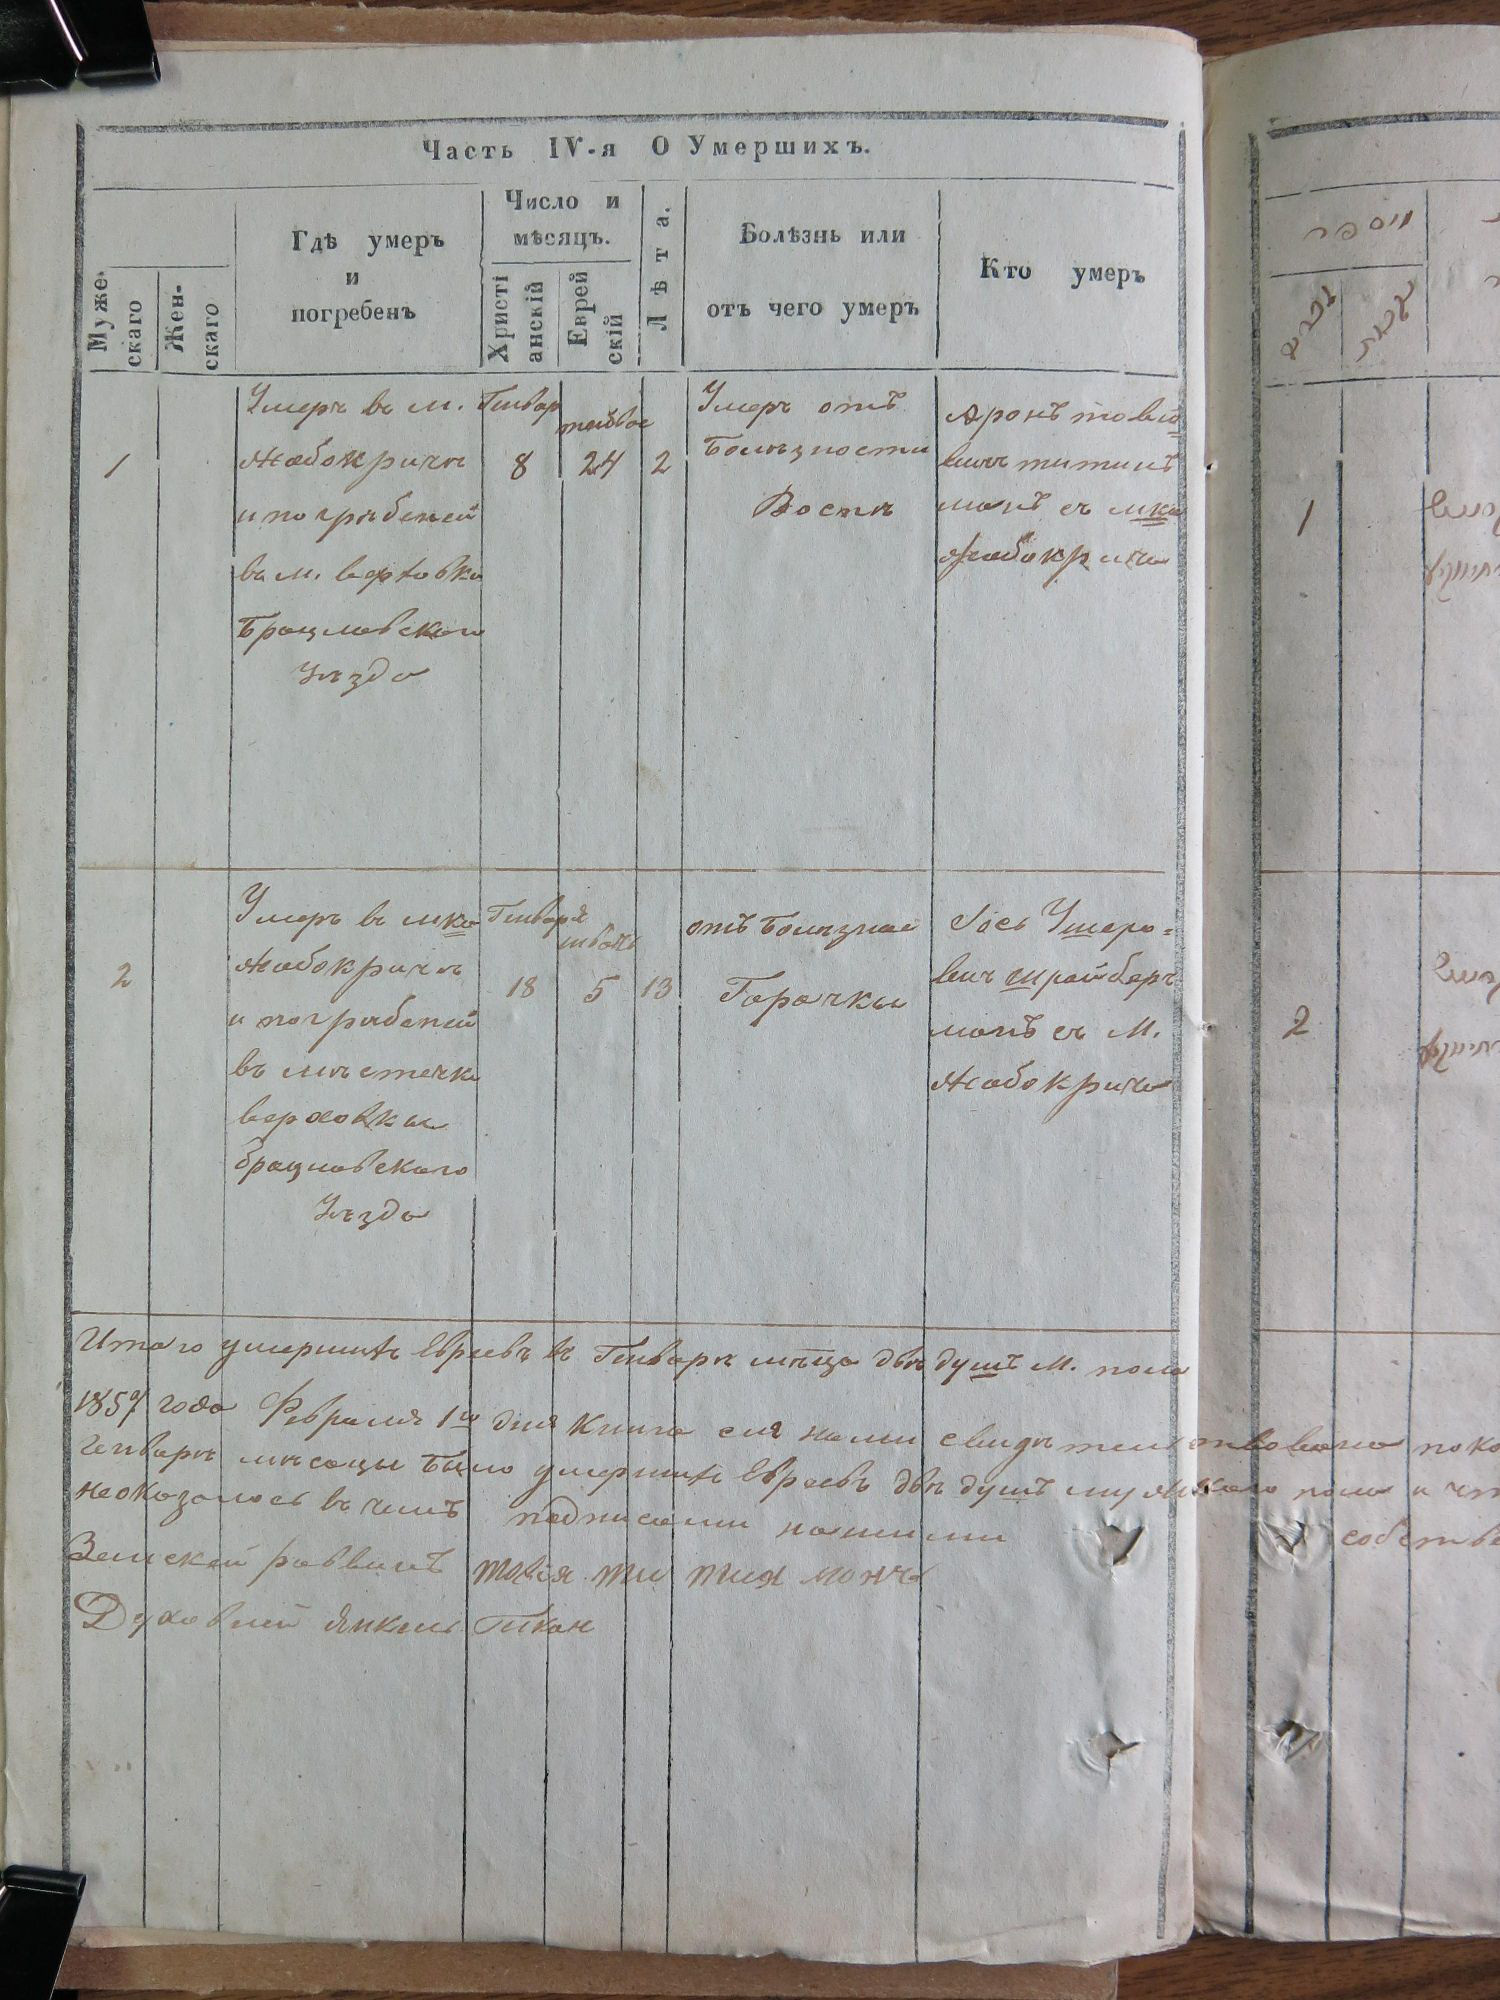 Часть IV-я О Умершихъ.
Муже-
скаго
Жен-
скаго
Гдѣ умеръ
и
погребенъ
Число и
мѣсяцъ.
Христі
анскій
Еврей
скій
Лѣта.
Болѣзнь или
отъ чего умеръ
Кто умеръ
1
Умеръ въ м.
Жабокричъ
и погрѣбеней
въ м. верховка
Брацлавскаго
Уѣзда
Генвар
8
24
2
Умеръ отъ
Болѣзности
Воспѣ
Аронъ товіо
вичъ титинъ
манъ съ мка
Жабокрича
2
Умеръ въ мка
Жабокричъ
и погрѣбеней
въ мѣстечка
верховки
брацлавскаго
Уѣзда
Генваря
18
5
13
отъ Болѣзнае
Горачки
Іось Ушеро-
вичъ шрайберъ
манъ съ М.
Жабокрича
Итого умершихъ Евреевъ въ Генваръ мѣца двѣ душъ М. пола
1857 года Февраля 1го дня Книга сия нами свидѣтельствована
Генваръ мѣсяцы было умершихъ Евреевъ двѣ душъ мужскаго пола и
неоказалось въ чемъ подписами нашими
Земскей раввинъ товія
Духовней Янкель Ткач
מספר
זכרים
1
2